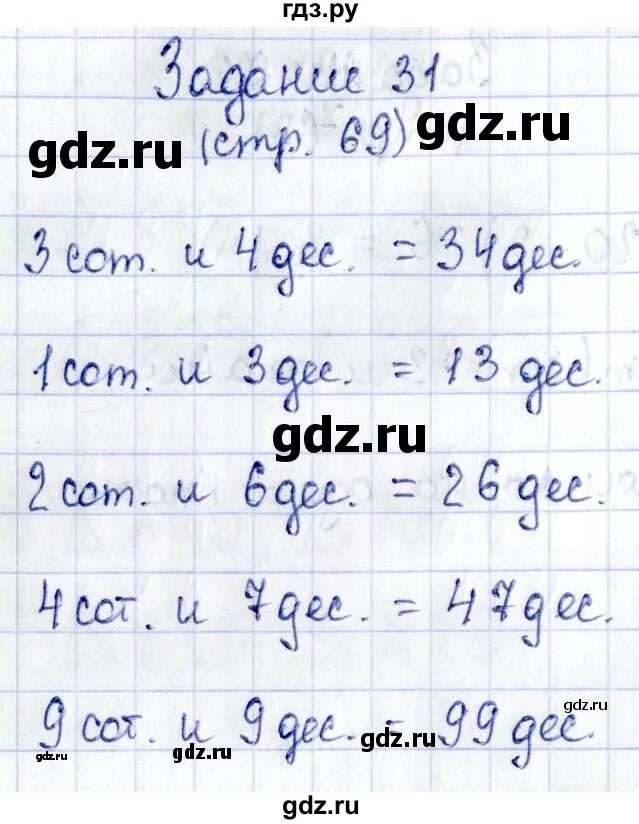 гдз.ру
Задание 31
gdz.ru
gdz.ru
(стр. 69)
3 сот. и 4 дес. = 34 дес.
1 сот. и 3 дес. = 13 дес.
gdz.ru
2 сот. и 6 дес. = 26 дес.
4 сот. и 7 дес. = 47 дес.
gdz.ru
9 сот. и 9 дес. = 99 дес.
gdz.ru
gdz.ru
gdz.ru
gdz.ru